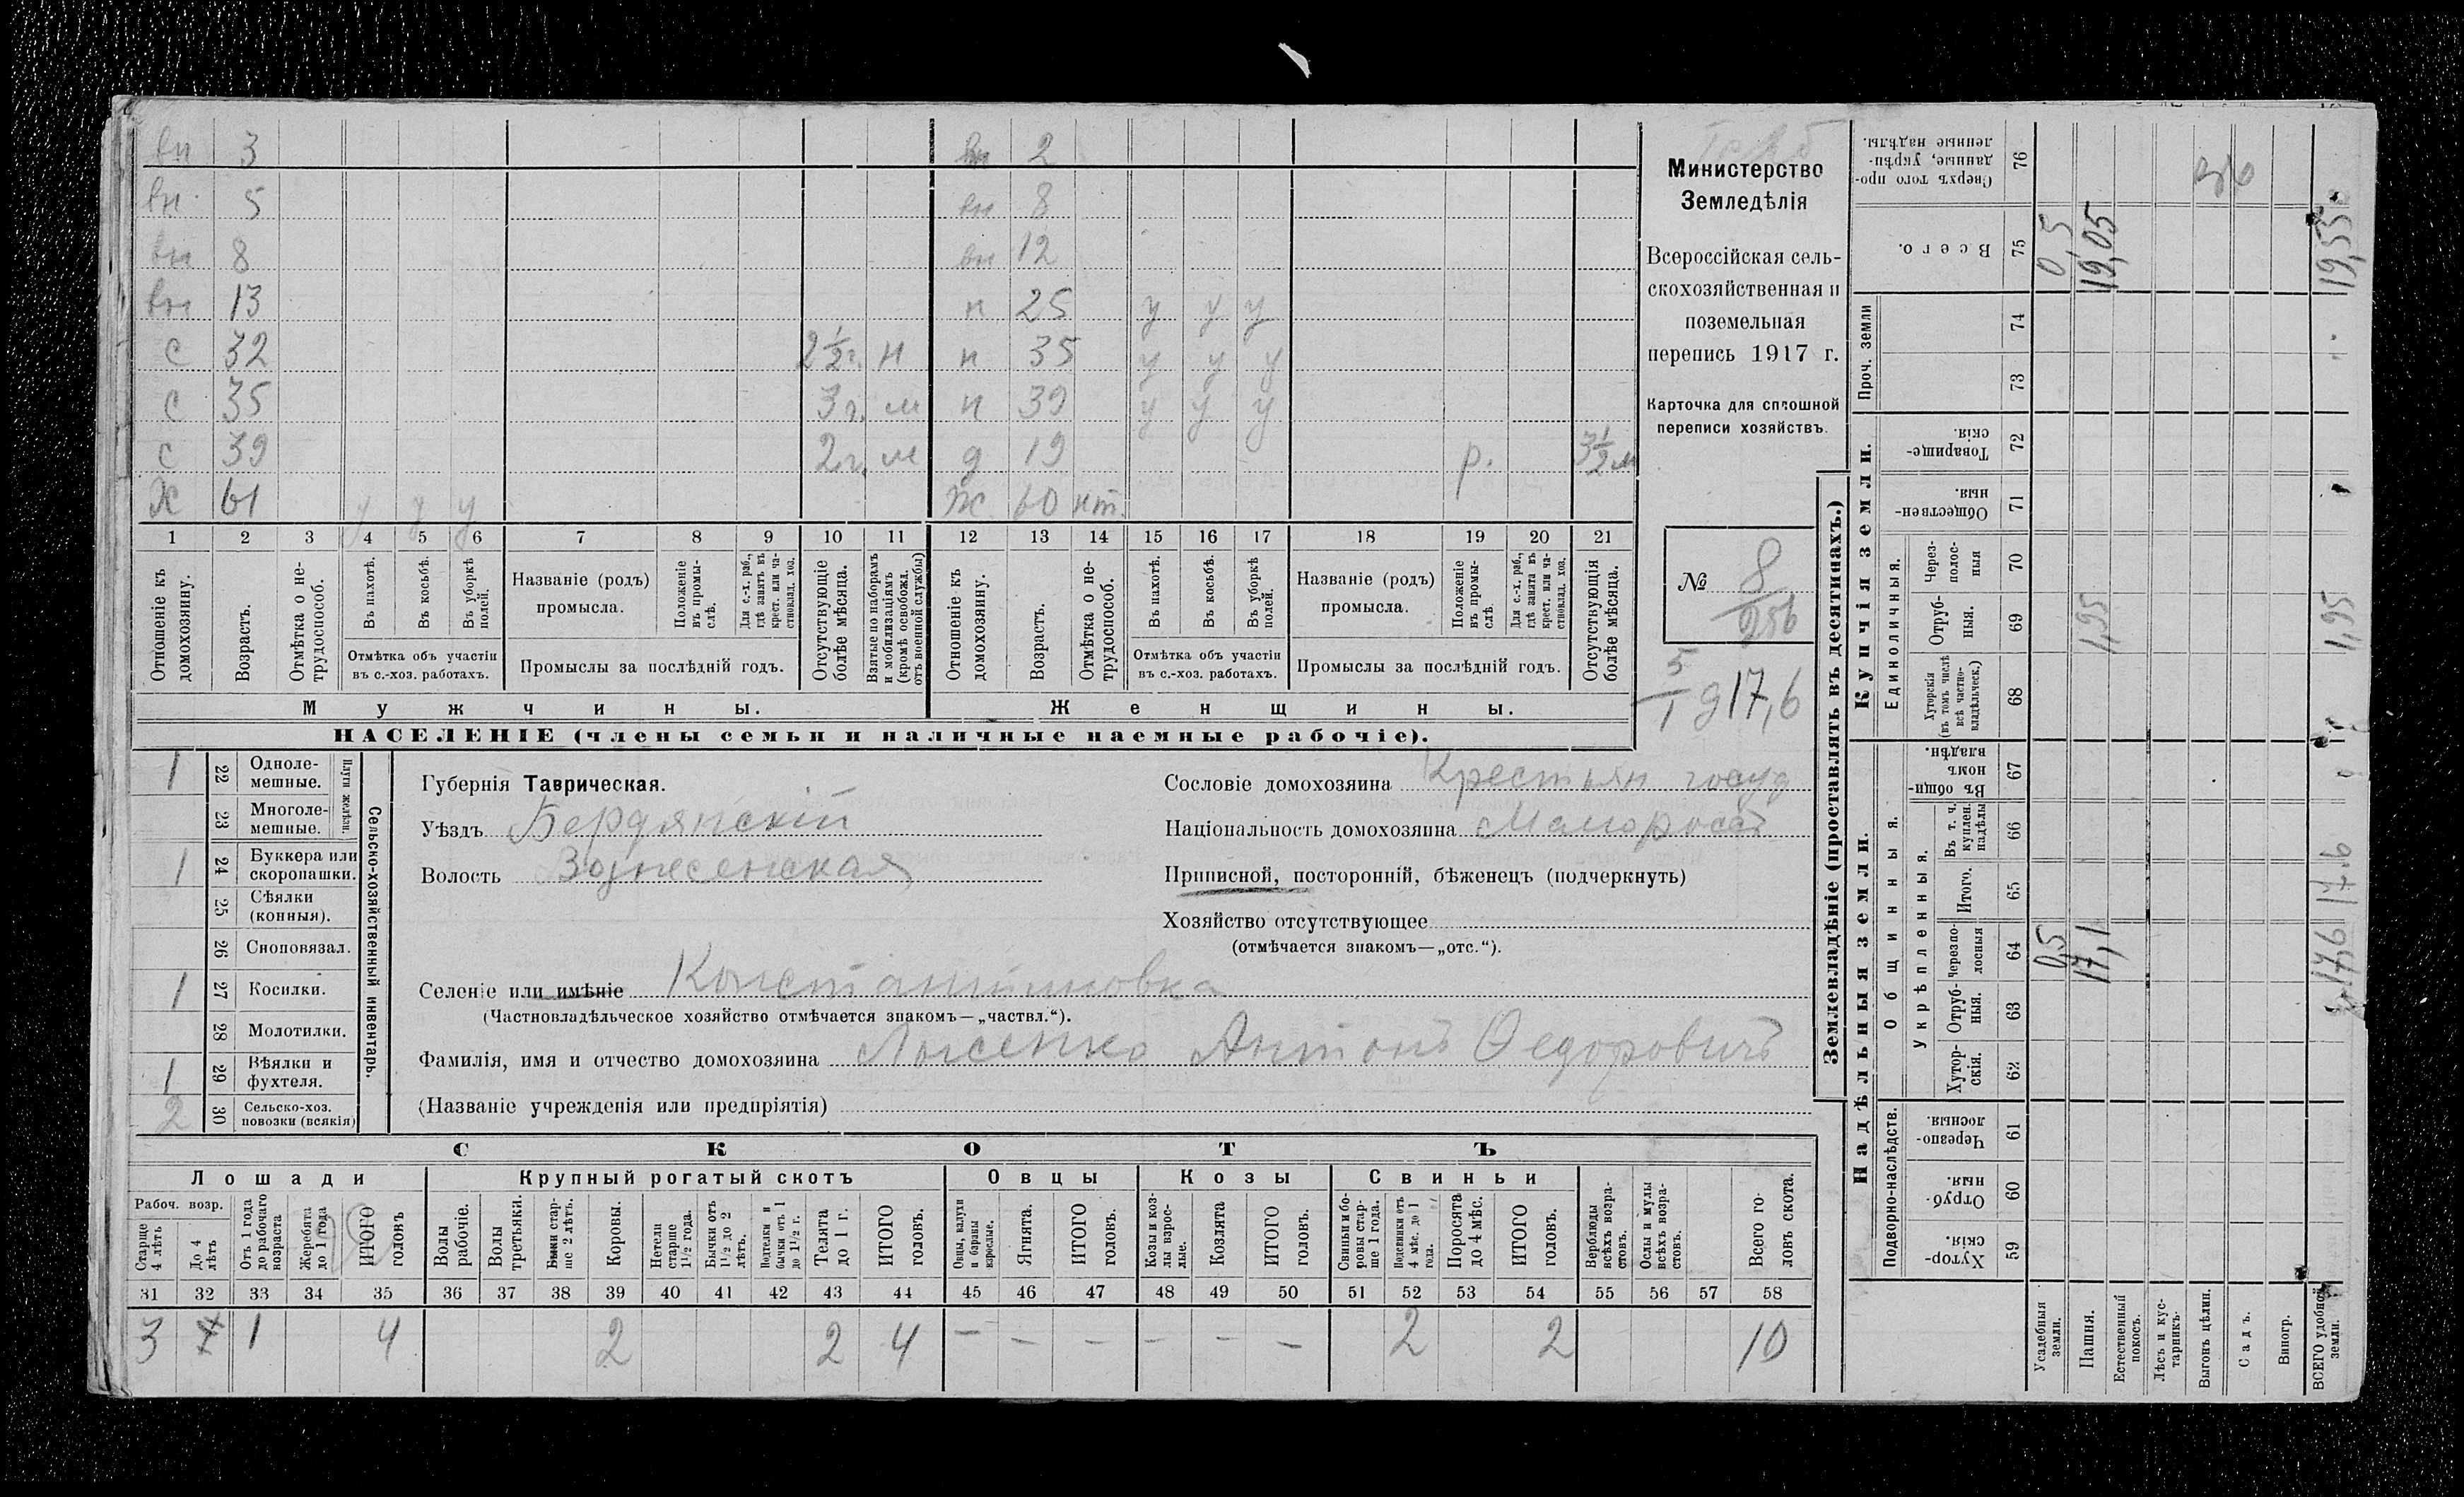 вн 3 вн 2
вн. 5 вн 8
вн 8 вн 12
вн 13 н 25 у у у
с 32 2½г. н н 35 у у у
с 35 3 г. м н 39 у у у
с 39 2 г. м д 19 р. 3½ м
Х 61 у у у Ж 60 нт.
1 2 3 4 5 6 7 8 9 10 11 12 13 14 15 16 17 18 19 20 21
Отношеніе къ домохозяину.
Возрастъ.
Отмѣтка о нетрудоспособ.
Въ пахотѣ.
Въ косьбѣ.
Въ уборкѣ полей.
Отмѣтка объ участіи
въ с.-хоз. работахъ.
Названіе (родъ)
промысла.
Положеніе въ промыслѣ.
Для с.-х. раб., гдѣ занятъ въ крест. или частновлад. хоз.
Промыслы за послѣдній годъ.
Отсутствующіе болѣе мѣсяца.
Взятые по наборамъ и мобилизаціямъ (кромѣ освобожд. отъ военной службы)
Отношеніе къ домохозяину.
Возрастъ.
Отмѣтка о нетрудоспособ.
Въ пахотѣ.
Въ косьбѣ.
Въ уборкѣ полей.
Отмѣтка объ участіи
въ с.-хоз. работахъ.
Названіе (родъ)
промысла.
Положеніе въ промыслѣ.
Для с.-х. раб., гдѣ занята въ крест. или частновлад. хоз.
Промыслы за послѣдній годъ.
Отсутствующія болѣе мѣсяца.
Мужчины. Женщины.
НАСЕЛЕНІЕ (члены семьи и наличные наемные рабочіе).
Министерство
Земледѣлія
Всероссійская сель-
скохозяйственная и
поземельная
перепись 1917 г.
Карточка для сплошной
переписи хозяйствъ.
№ 8
256
5
1 д 17,6
1 22 Одноле-
мешные.
23 Многоле-
мешные.
Плуги желѣзн.
1 24 Буккера или
скоропашки.
25 Сѣялки
(конныя).
26 Сноповязал.
1 27 Косилки.
28 Молотилки.
1 29 Вѣялки и
фухтеля.
2 30 Сельско-хоз.
повозки (всякія)
Сельско-хозяйственный инвентарь.
Губернія Таврическая.
Уѣздъ Бердянскій
Волость Вознесенская
Селеніе или имѣніе Константиновка
(Частновладѣльческое хозяйство отмѣчается знакомъ—„частвл.“).
Фамилія, имя и отчество домохозяина Лысенко Антонъ Ѳедоровичъ
(Названіе учрежденія или предпріятія)
Сословіе домохозяина Крестьян госуд
Національность домохозяина Малороссъ
Приписной, посторонній, бѣженецъ (подчеркнуть)
Хозяйство отсутствующее
(отмѣчается знакомъ—„отс.“).
СКОТЪ
Лошади Крупный рогатый скотъ Овцы Козы Свиньи
Рабоч. возр.
Старше 4 лѣтъ
До 4 лѣтъ
Отъ 1 года до рабочаго возраста
Жеребята до 1 года
ИТОГО головъ
Волы рабочіе.
Волы третьяки.
Быки старше 2 лѣтъ.
Коровы.
Нетели старше 1½ года.
Бычки отъ 1½ до 2 лѣтъ.
Подтелки и бычки отъ 1 до 1½ г.
Телята до 1 г.
ИТОГО головъ.
Овцы, валухи и бараны взрослые.
Ягнята.
ИТОГО головъ.
Козы и козлы взрослые.
Козлята
ИТОГО головъ.
Свиньи и боровы старше 1 года.
Подсвинки отъ 4 мѣс. до 1 года.
Поросята до 4 мѣс.
ИТОГО головъ.
Верблюды всѣхъ возрастовъ.
Ослы и мулы всѣхъ возрастовъ.
Всего головъ скота.
31 32 33 34 35 36 37 38 39 40 41 42 43 44 45 46 47 48 49 50 51 52 53 54 55 56 57 58
3 1 4 2 2 4 — — — — — — 2 2 10
Землевладѣніе (проставлять въ десятинахъ.)
Надѣльныя земли. Купчія земли. Проч. земли
Подворно-наслѣдств. Общинныя. Единоличныя.
укрѣпленныя.
Хуторскія. 59
Отрубныя. 60
Черезполосныя. 61
Хуторскія. 62
Отрубныя. 63
Черезполосныя 64
Итого. 65
Въ т. ч. куплен. надѣлы 66
Въ общинномъ владѣн. 67
Хуторскія (въ томъ числѣ всѣ частновладѣльческ.) 68
Отрубныя. 69
Черезполосныя 70
Общественныя. 71
Товарищескія. 72
73
74
Всего. 75
Сверхъ того проданные, укрѣпленные надѣлы. 76
Усадебныя земли. 0,5 0,5
Пашня. 17,1 1,95 19,05
Естественный покосъ.
Лѣсъ и кустарникъ.
Выгонъ цѣлин.
Садъ.
Виногр.
ВСЕГО удобной земли. 17,6 17,6 1,95 19,55